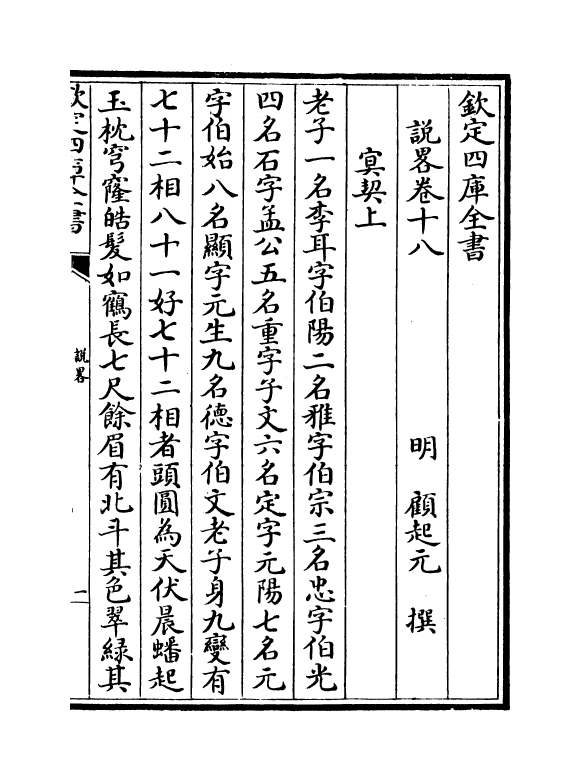 欽定四庫全書
說畧卷十八　明　顧起元　撰
冥契上
老子一名李耳字伯陽二名雅字伯宗三名忠字伯光
四名石字孟公五名重字子文六名定字元陽七名元
字伯始八名顯字元生九名德字伯文老子身九變有
七十二相八十一好七十二相者頭圓為天伏晨蟠起
玉枕穹窿皓髮如鶴長七尺餘眉有北斗其色翠緑其
欽定四庫全書
說畧
一